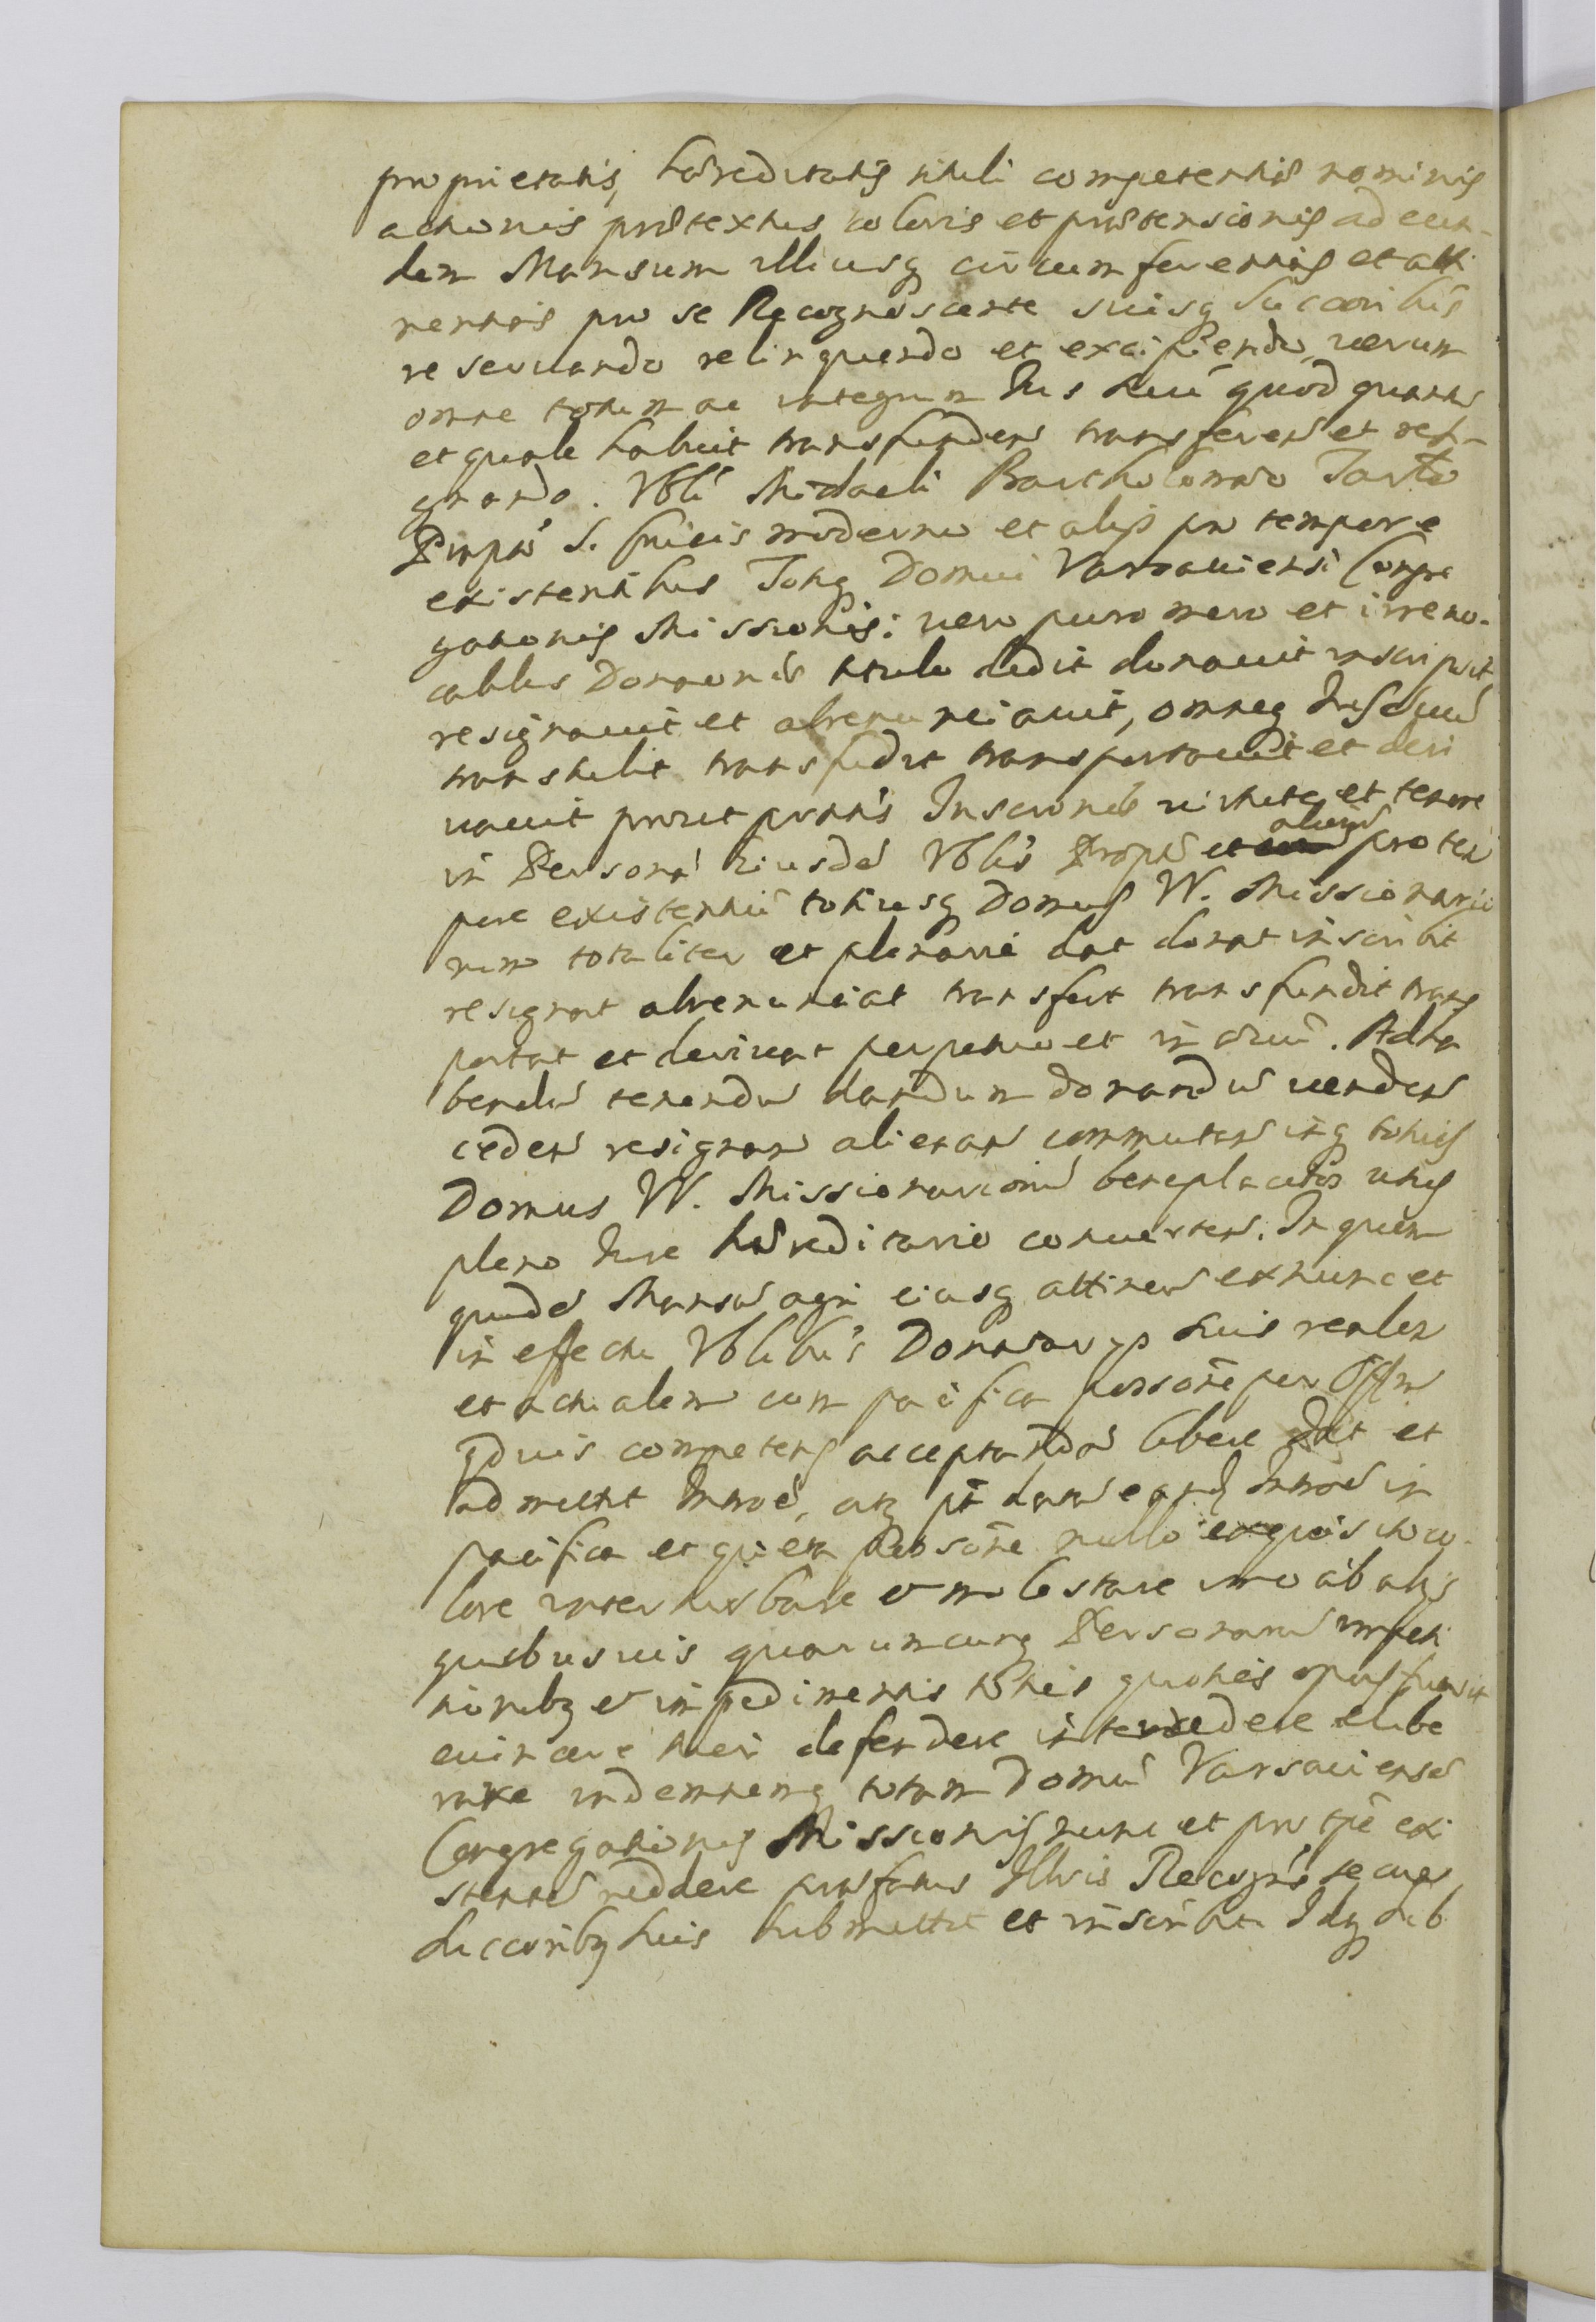 proprietatis, hæreditatis tituli competentis nominis
actionis prætextus coloris et prætensionis ad eun-
dem Mansum illiusq circumferentias et atti
nentias pro se Recognoscente suisq Succoribus
reservando relinquendo et excipiendo, verum
omne totum ac integrum Jus suū quod quantū
et quale habuit transfunden transferen et resi-
gnando. Vbli Michaeli Bartholomæo Tarło
Præpto S. Crucis moderno et alijs pro tempore
existentibus Totiq Domui Varsaviensi Congre
gationis Missionis: vero puro mero et irrevo-
cabilis Donaonis titulo dedit donavit inscripsit
resignavit et abrenunciavit, omneq Jus suū
transtulit transfudit transportavit et deri
vavit prout prntis Inscrionis virtute et tenore
in Personā Eiusdē Vblis Præpti et aliorū pro tem
pore existentiū totiusq Domus VV. Missionario
rum totaliter et plenarie dat donat inscribit
resignat abrenunciat transfert transfundit trans
portat et derivat perpetuo et in ævū. Ad ha
bendū tenendū dandum donandū venden
ceden resignan alienan commutan inq totius
Domus VV. Missionariorū beneplacitos usus
pleno Jure hæreditario converten. In quem
quidē Mansū agri eiusq attinen ex nunc et
in effectu Vblibus Donatarijs suis realem
et actualem cum pacifica possone per Offm
qduis competens acceptandā libere dat et
admittit Intrōē, atq pt datā eandē Intrōē in
pacifica et quieta possone nullo exquisito co-
lore interturbare et molestare imo ab alijs
quibusvis quarumcunq Personarū impeti
tionibq et impedimentis toties quoties opus fuerit
evincere tueri defendere intercedere elibe
rare indemnemq totam Domū Varsaviensē
Congregationis Missionis nunc et pro tpe exi
stentē reddere præfatus Illris Recogns se cum
Succoribq suis submittit et inscribit Idq sub